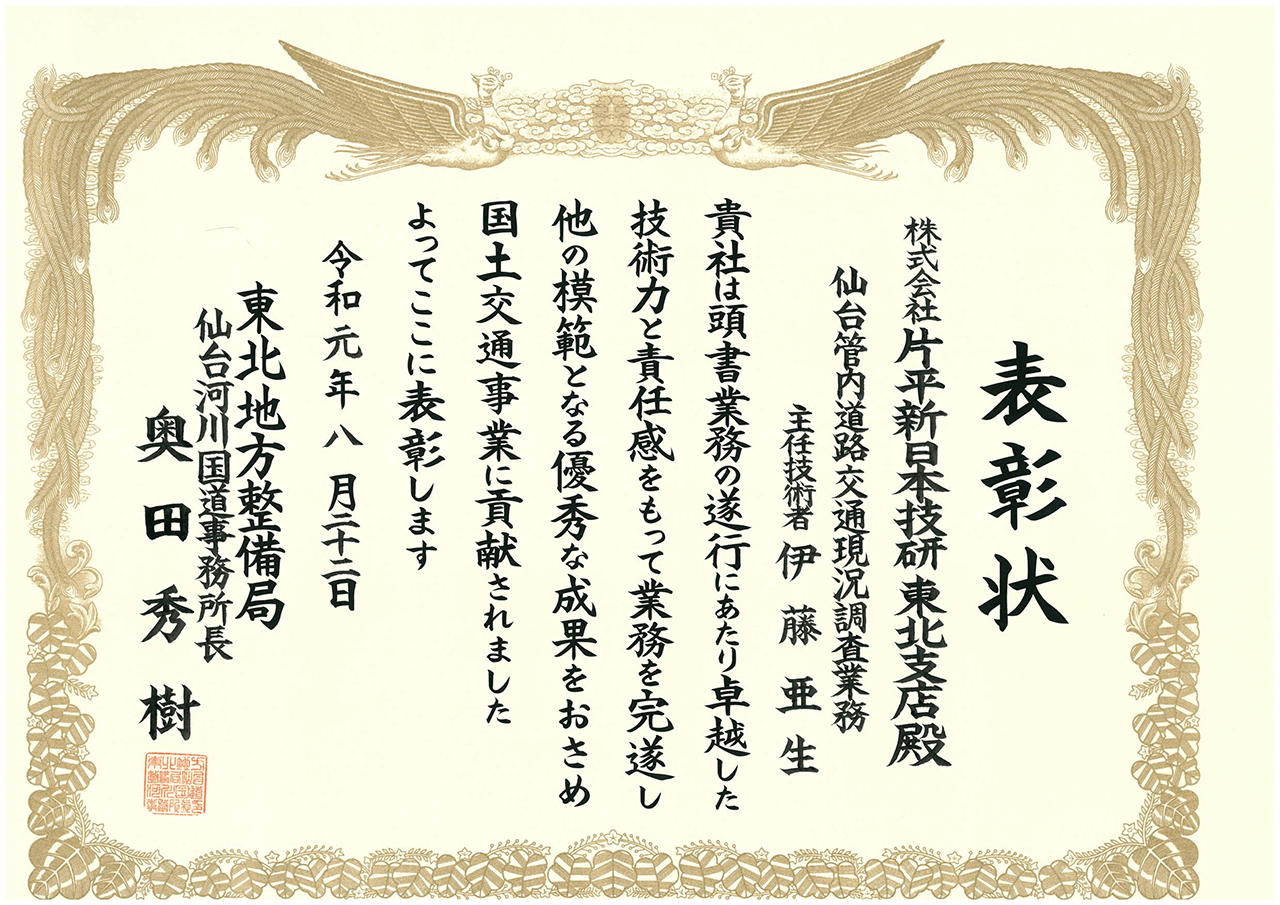 表彰状
株式会社片平新日本技研 東北支店殿
仙台管内道路交通現況調査業務
主任技術者 伊藤亜生
貴社は頭書業務の遂行にあたり卓越した
技術力と責任感をもって業務を完遂し
他の模範となる優秀な成果をおさめ
国土交通事業に貢献されました
よってここに表彰します
令和元年八月二十二日
東北地方整備局
仙台河川国道事務所長
奥田秀樹